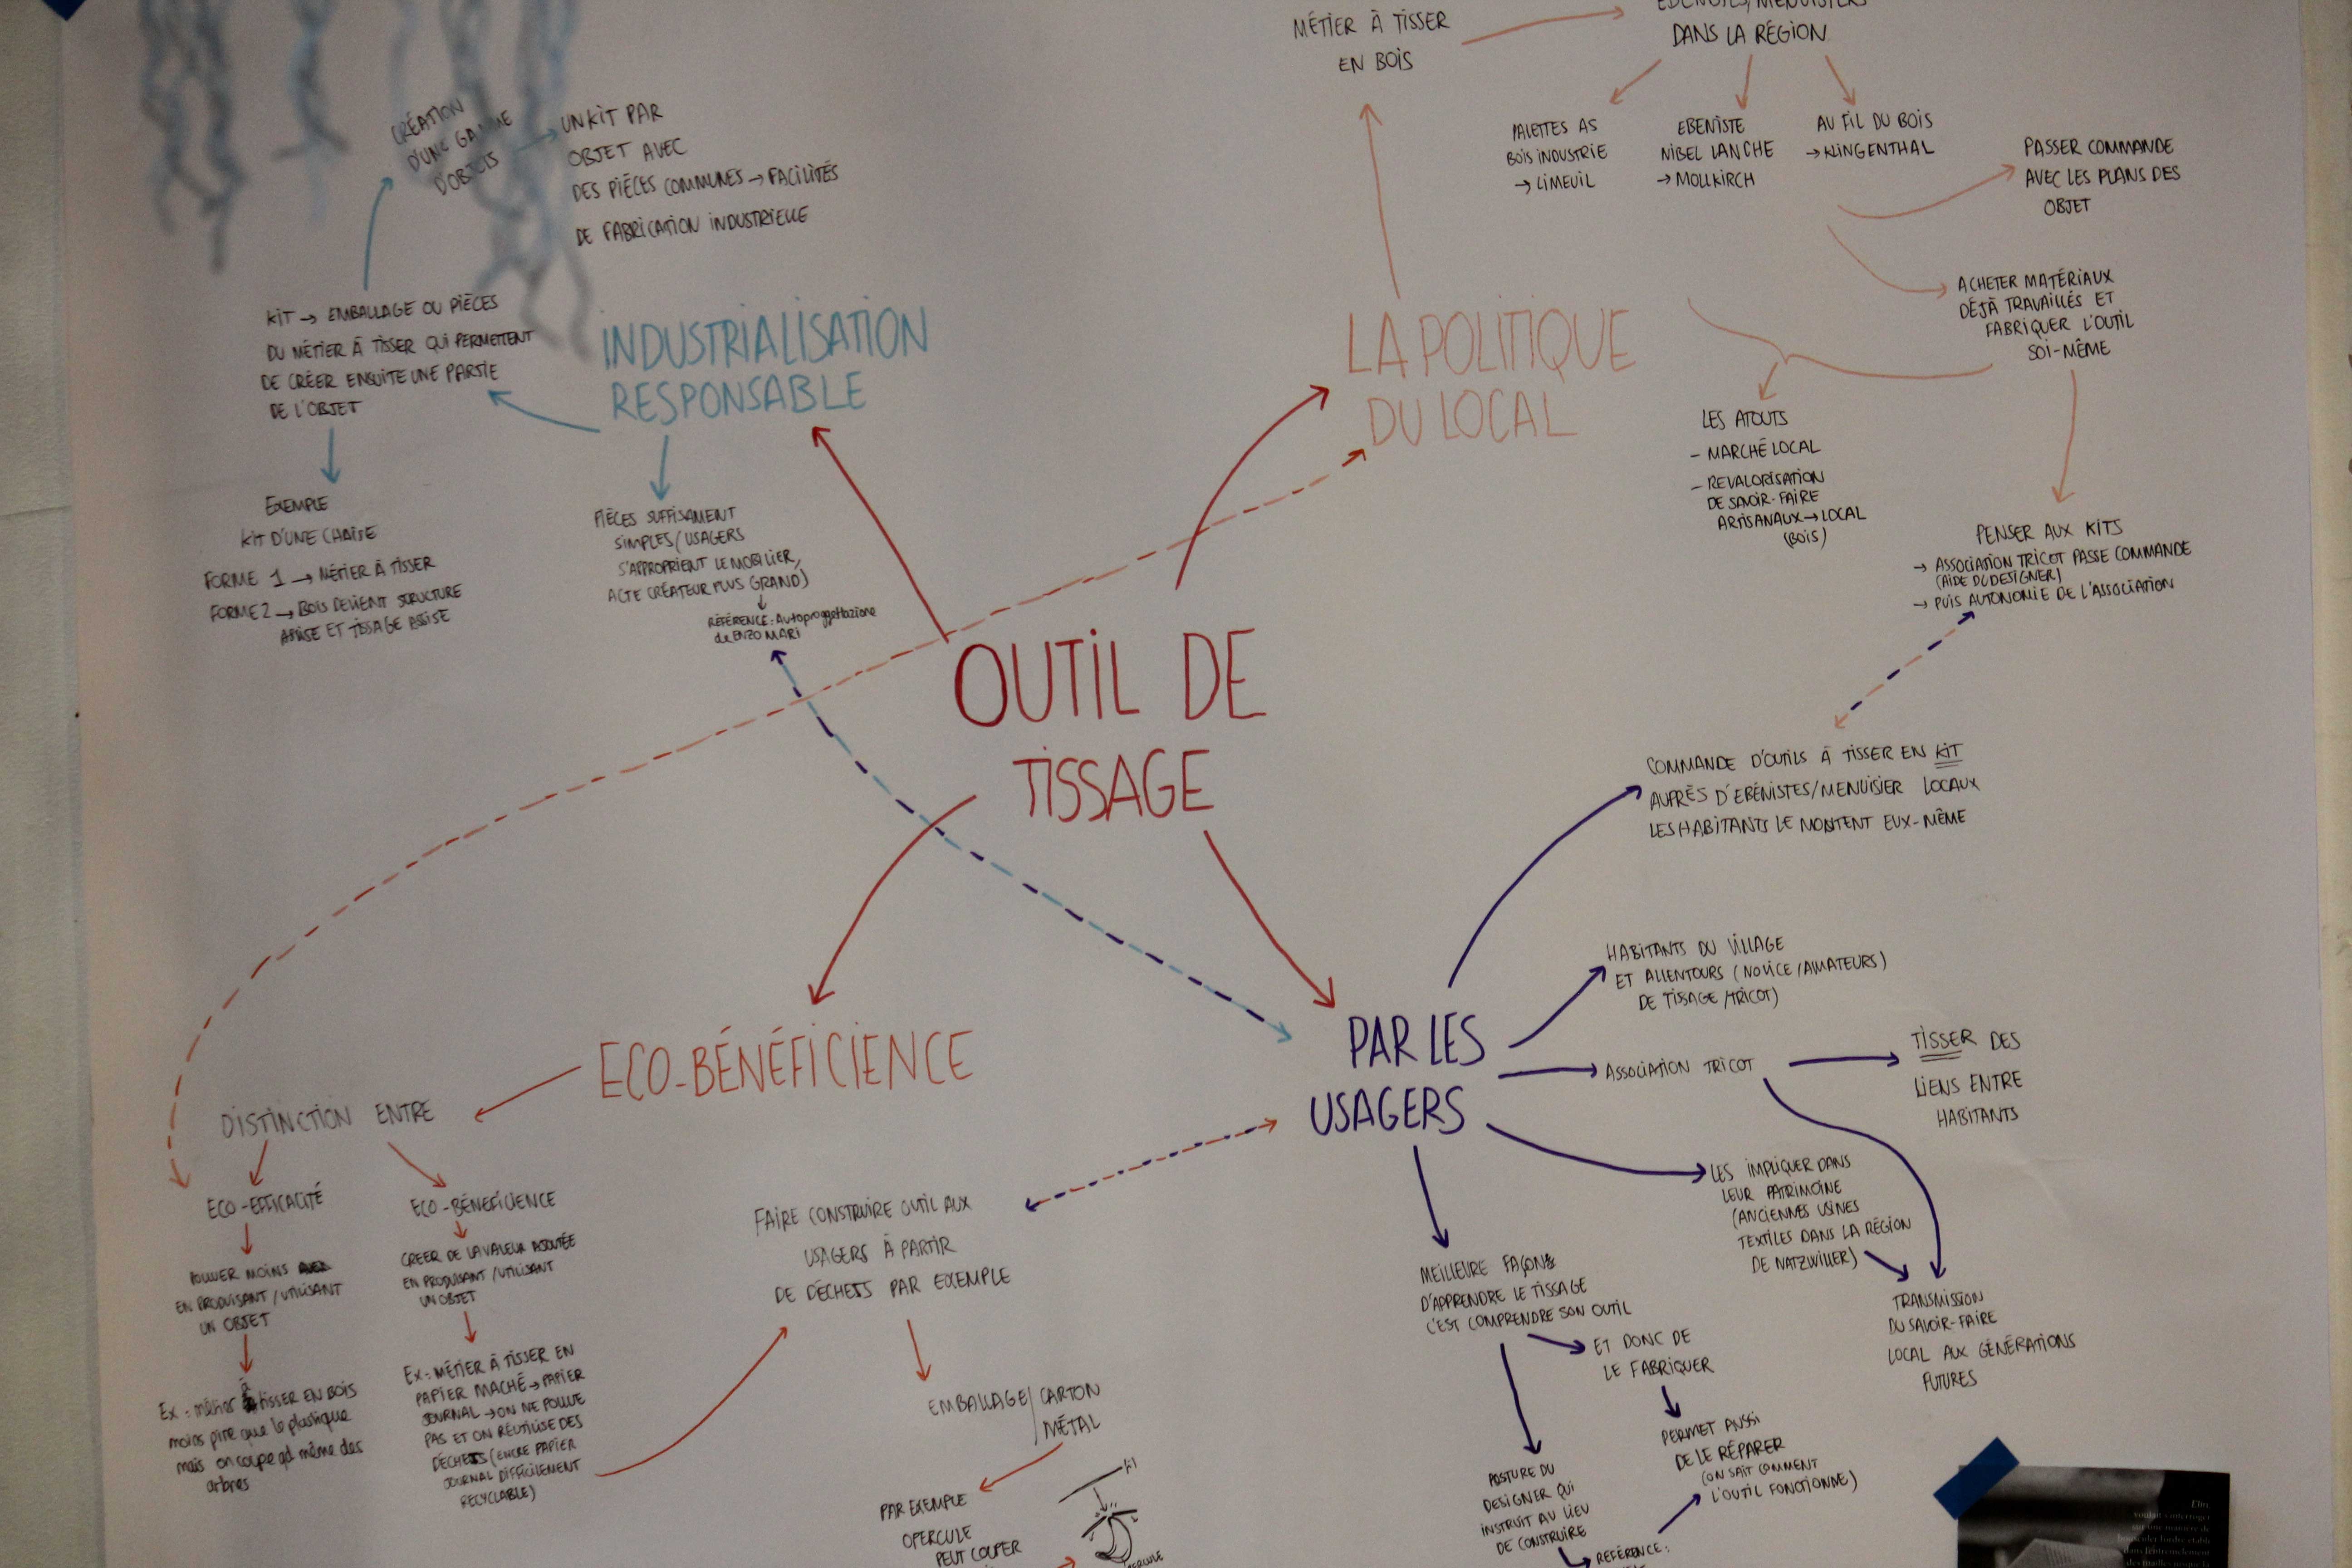 CRÉATION
D'UNE GAMME
D'OBJETS
UN KIT PAR
OBJET AVEC
DES PIÈCES COMMUNES → FACILITÉS
DE FABRICATION INDUSTRIELLE
KIT → EMBALLAGE OU PIÈCES
DU MÉTIER À TISSER QUI PERMETTENT
DE CRÉER ENSUITE UNE PARTIE
DE L'OBJET
INDUSTRIALISATION
RESPONSABLE
EXEMPLE
KIT D'UNE CHAISE
FORME 1 → MÉTIER À TISSER
FORME 2 → BOIS DEVIENT STRUCTURE
ASSISE ET TISSAGE ASSISE
PIÈCES SUFFISAMENT
SIMPLES (USAGERS
S'APPROPRIENT LE MOBILIER,
ACTE CRÉATEUR PLUS GRAND)
RÉFÉRENCE : Autoproggettazione
de ENZO MARI
MÉTIER À TISSER
EN BOIS
DANS LA RÉGION
PALETTES AS
BOIS INDUSTRIE
→ LIMEUIL
EBENISTE
NIBEL LANCHE
→ MOLLKIRCH
AU FIL DU BOIS
→ KLINGENTHAL
PASSER COMMANDE
AVEC LES PLANS DES
OBJET
ACHETER MATÉRIAUX
DÉJÀ TRAVAILLÉS ET
FABRIQUER L'OUTIL
SOI-MÊME
LA POLITIQUE
DU LOCAL
LES ATOUTS
- MARCHÉ LOCAL
- REVALORISATION
DE SAVOIR-FAIRE
ARTISANAUX → LOCAL
(BOIS)
PENSER AUX KITS
→ ASSOCIATION TRICOT PASSE COMMANDE
(AIDE DU DESIGNER)
→ PUIS AUTONOMIE DE L'ASSOCIATION
OUTIL DE
TISSAGE
COMMANDE D'OUTILS À TISSER EN KIT
AUPRÈS D'EBÉNISTES/MENUISIER LOCAUX
LES HABITANTS LE MONTENT EUX-MÊME
HABITANTS DU VILLAGE
ET ALLENTOURS (NOVICE/AMATEURS)
DE TISSAGE/TRICOT)
PAR LES
USAGERS
ASSOCIATION TRICOT
TISSER DES
LIENS ENTRE
HABITANTS
LES IMPLIQUER DANS
LEUR PATRIMOINE
(ANCIENNES USINES
TEXTILES DANS LA RÉGION
DE NATZWILLER)
TRANSMISSION
DU SAVOIR-FAIRE
LOCAL AUX GÉNÉRATIONS
FUTURES
MEILLEURE FAÇONS
D'APPRENDRE LE TISSAGE
C'EST COMPRENDRE SON OUTIL
ET DONC DE
LE FABRIQUER
PERMET AUSSI
DE LE RÉPARER
(ON SAIT COMMENT
L'OUTIL FONCTIONNE)
POSTURE DU
DESIGNER QUI
INSTRUIT AU LIEU
DE CONSTRUIRE
RÉFÉRENCE :
ECO-BÉNÉFICIENCE
DISTINCTION ENTRE
ECO-EFFICACITÉ
POLLUER MOINS
EN PRODUISANT/UTILISANT
UN OBJET
Ex : métier à tisser EN BOIS
moins pire que le plastique
mais on coupe qd même des
arbres
ECO-BÉNEFICIENCE
CREER DE LA VALEUR AJOUTÉE
EN PRODUISANT/UTILISANT
UN OBJET
Ex : MÉTIER À TISSER EN
PAPIER MACHÉ → PAPIER
JOURNAL → ON NE POLLUE
PAS ET ON RÉUTILISE DES
DÉCHETS (ENCRE PAPIER
JOURNAL DIFFICILEMENT
RECYCLABLE)
FAIRE CONSTRUIRE OUTIL AUX
USAGERS À PARTIR
DE DÉCHETS PAR EXEMPLE
EMBALLAGE/CARTON
MÉTAL
PAR EXEMPLE
OPERCULE
PEUT COUPER